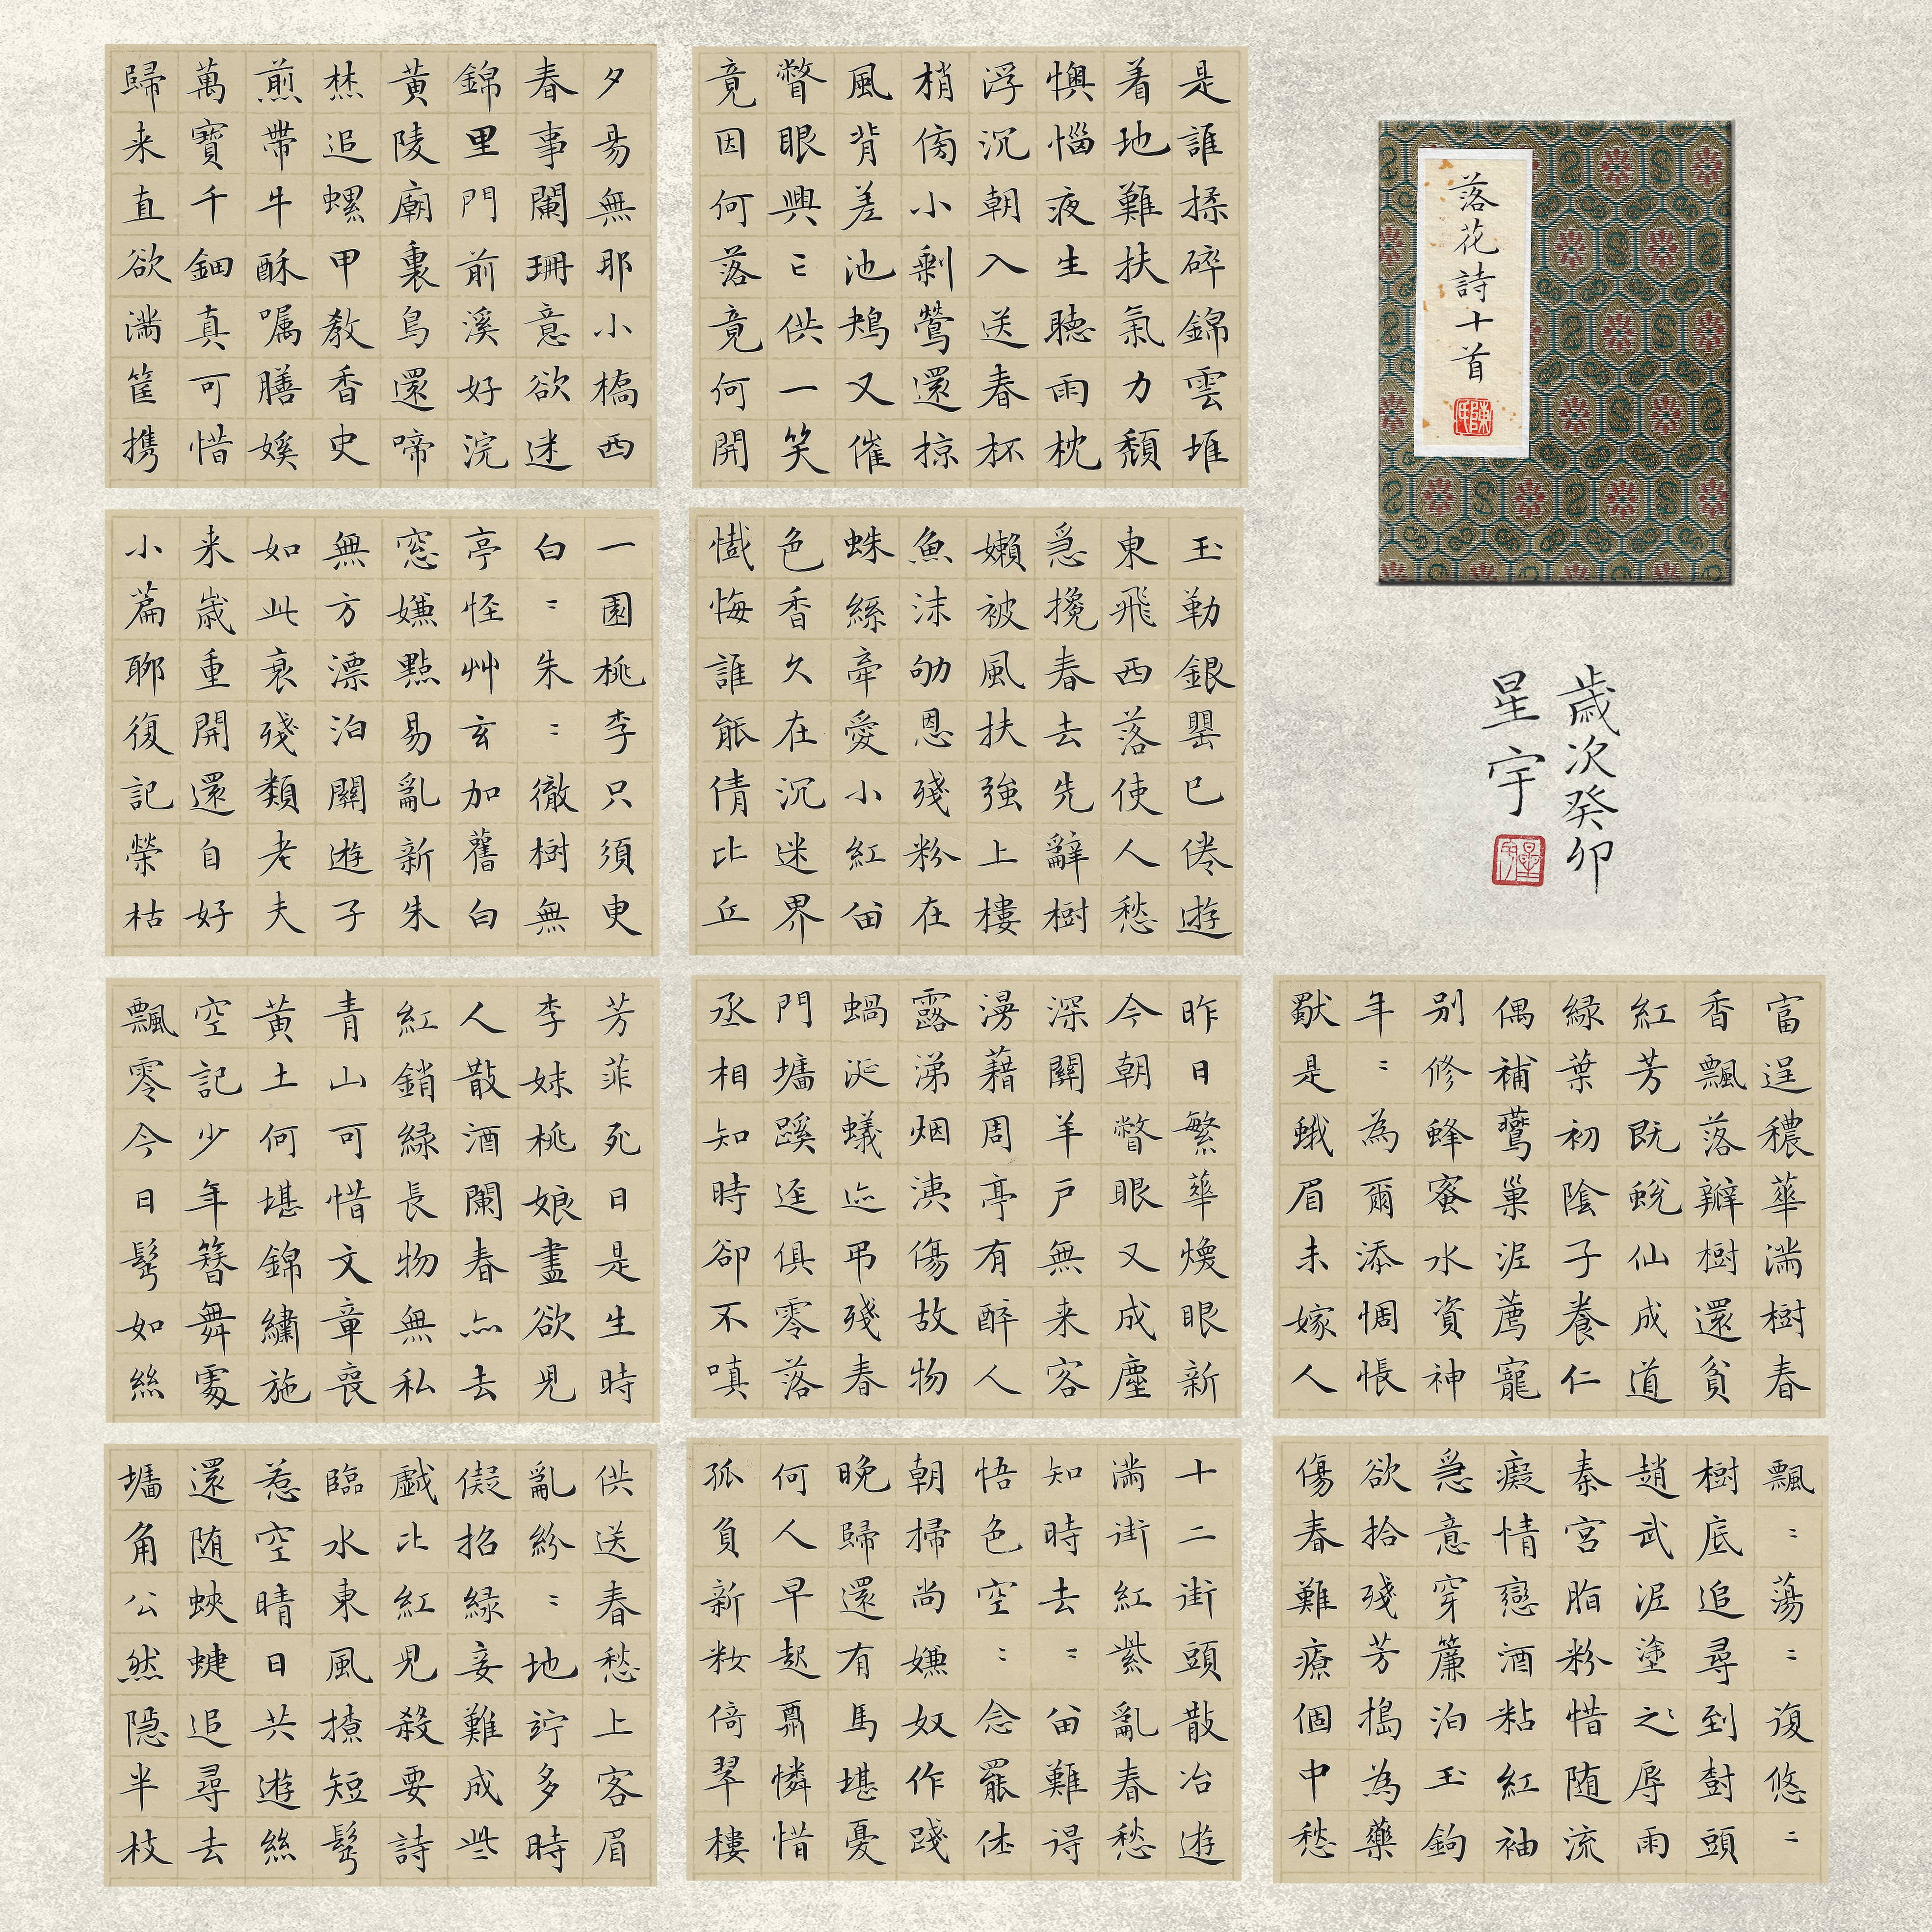 落花詩十首
歲次癸卯
星宇
富逞穠華滿樹春
香飄落瓣樹還貧
紅芳既蛻仙成道
緑葉初陰子養仁
偶補鶯巢泥薦寵
別修蜂蜜水資神
年〻為爾添惆悵
獃是蛾眉未嫁人
飄〻蕩〻復悠〻
樹底追尋到樹頭
趙武泥塗之辱雨
秦宮脂粉惜随流
癡情戀酒粘紅袖
急意穿簾泊玉鉤
欲拾殘芳搗為藥
傷春難療個中愁
是誰揉碎錦雲堆
着地難扶氣力頹
懊惱夜生聴雨枕
浮沉朝入送春杯
梢傍小剩鶯還掠
風背差池鳺又催
瞥眼興亡供一笑
竟因何落竟何開
玉勒銀罌已倦遊
東飛西落使人愁
急攙春去先辭樹
嬾被風扶強上樓
魚沫劬恩殘粉在
蛛絲牽愛小紅留
色香久在沉迷界
懺悔誰能倩比丘
昨日繁華煥眼新
今朝瞥眼又成塵
深關羊戸無来客
漫藉周亭有醉人
露涕烟洟傷故物
蝸涎蟻迹弔殘春
門墻蹊逕俱零落
丞相知時卻不嗔
十二街頭散冶遊
滿街紅紫亂春愁
知時去〻留難得
悟色空〻念罷休
朝掃尚嫌奴作踐
晚歸還有馬堪憂
何人早起羃憐惜
孤負新妝倚翠樓
夕昜無耶小橋西
春事闌珊意欲迷
錦里門前溪好浣
黃陵廟裏鳥還啼
焚追螺甲教香史
煎帶牛酥嘱膳媛
萬寶千鈿真可惜
歸来直欲滿筐携
一園桃李只須臾
白〻朱〻徹樹無
亭怪艸玄加舊白
窓嫌點易亂新朱
無方漂泊關遊子
如此衰殘類老夫
来歲重開還自好
小篇聊復記榮枯
芳菲死日是生時
李妹桃娘盡欲兒
人散酒闌春亦去
紅銷緑長物無私
青山可惜文章喪
黃土何堪錦繡施
空記少年簪舞處
飄零今日髩如絲
供送春愁上客眉
亂紛〻地竚多時
儗招緑妾難成些
戲比紅兒殺要詩
臨水東風撩短髩
惹空晴日共遊絲
還随蛺蜨追尋去
墻角公然隠半枝